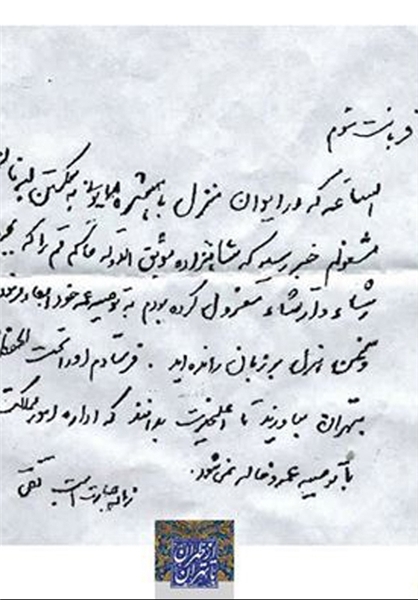 قربانت شوم
الساعه که در ایوان منزل با همشیره همایونی به شکستن لبه نان
مشغولم خبر رسید که شاهزاده موثق الدوله حاکم قم را که
رشاء و ارتشاء معزول کرده بودم به توصیه عمه خود ابقاء فرموده
و سخن هزل بر زبان رانده اید . فرستادم او را تحت الحفظ
بتهران بیاورند تا اعلیحضرت بدانند که اداره امور مملکت
با توصیه عمه و خاله نمی شود .
زیاده جسارت است تقی
از طهران
تا تهران